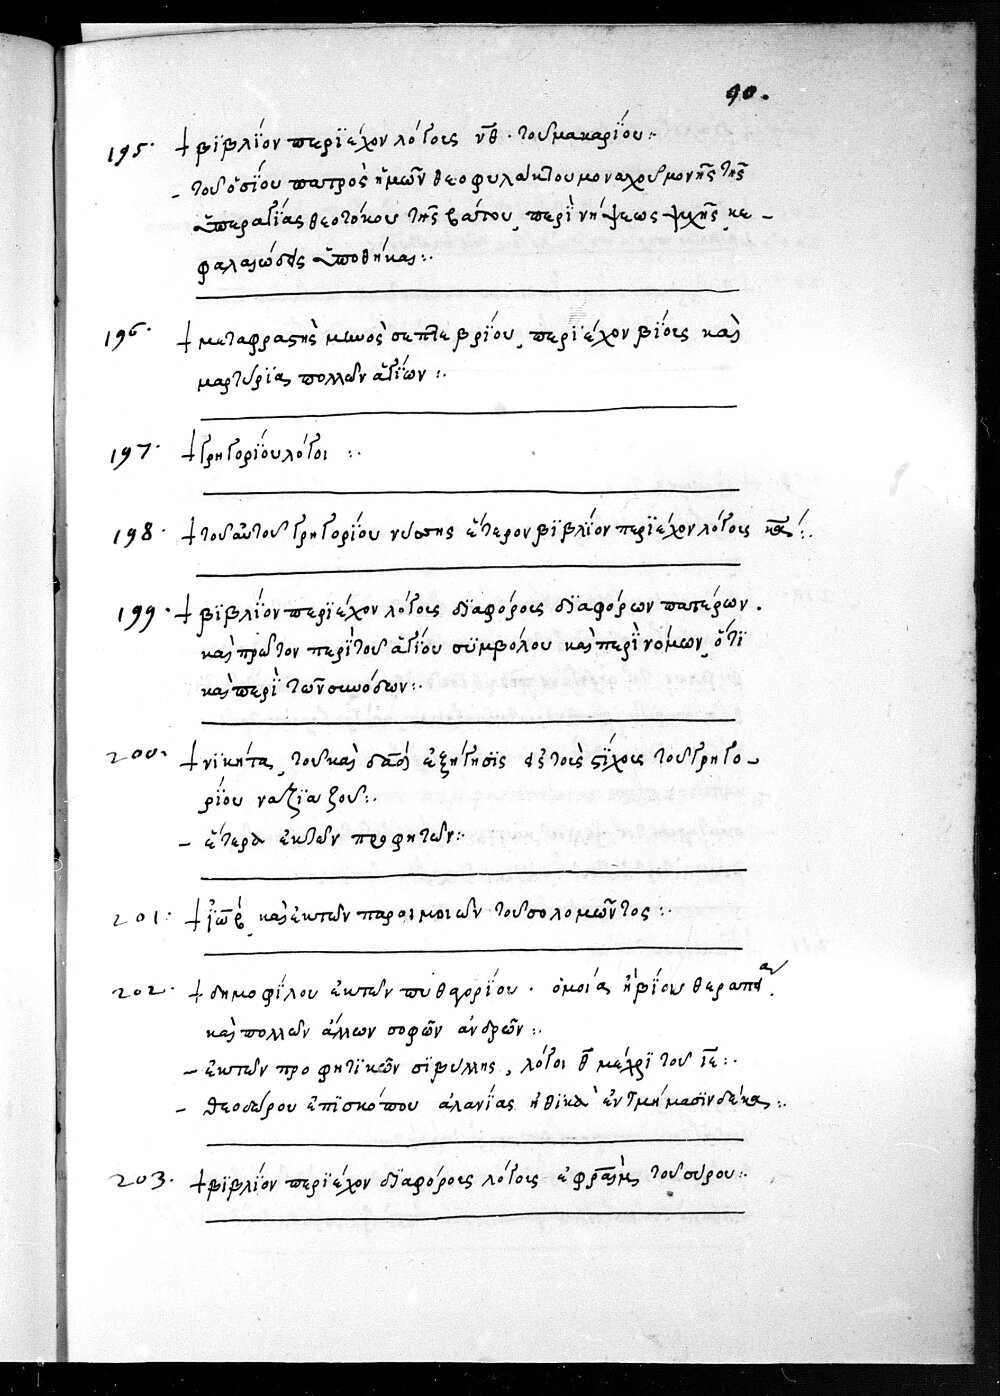 90.
195. † βϊβλΐον περϊέχον λόγους ν̅θ̅ · τοῦ μακαρΐου :·
- τοῦ ὁσίου πατρὸς ἡμῶν θεοφυλάκτου μοναχοῦ μονῆς τῆς
ὑπεραγίας θεοτόκου τῆς βάτου, περὶ νήψεως ψυχῆς κε-
φαλαιώδεις ὑποθῆκαι :·
196. † μεταφραστὴς μηνὸς σεπτεβρίου, περϊέχον βίους καὶ
μαρτυρίας πολλῶν ἁγΐων :·
197. † γρηγορΐου λόγοι :·
198. † τοῦ αὐτοῦ γρηγορΐου νύσσης ἕτερον βϊβλίον περϊέχον λόγους κ̅α̅ :·
199. † βϊβλΐον περϊέχον λόγους διαφόρους διαφόρων πατέρων.
καὶ πρῶτον περὶ τοῦ ἁγΐου συμβόλου καὶ περὶ νόμων, ἔτι
καὶ περὶ τῶν συνόδων :·
200. † νϊκήτα, τοῦ καὶ δα̅δ̅ ἐξήγησϊς εἰς τοὺς στΐχους τοῦ γρηγο-
ρΐου ναζϊαζοῦ :·
- ἕτερα ἐκ τῶν προφητῶν :·
201. † ἰὼβ, καὶ ἐκ τῶν παροιμοιῶν τοῦ σολομῶντος :·
202. † δημοφίλου ἐκ τῶν πυθαορίου · ὁμοίας ἢ βίου θεραπείαν.
καὶ πολλῶν ἄλλων σοφῶν ἀνδρῶν :·
- ἐκ τῶν προφητϊκῶν σϊβύλλης, λόγοι θ̅ μέχρϊ τοῦ ι̅ε̅ :·
- θεοδώρου ἐπϊσκόπου ἀλανίας ἠθϊκὰ ἐν τμήμασϊν δέκα :·
203. † βϊβλίον περϊέχον διαφόρους λόγους ἐφραὶμ τοῦ σύρου :·